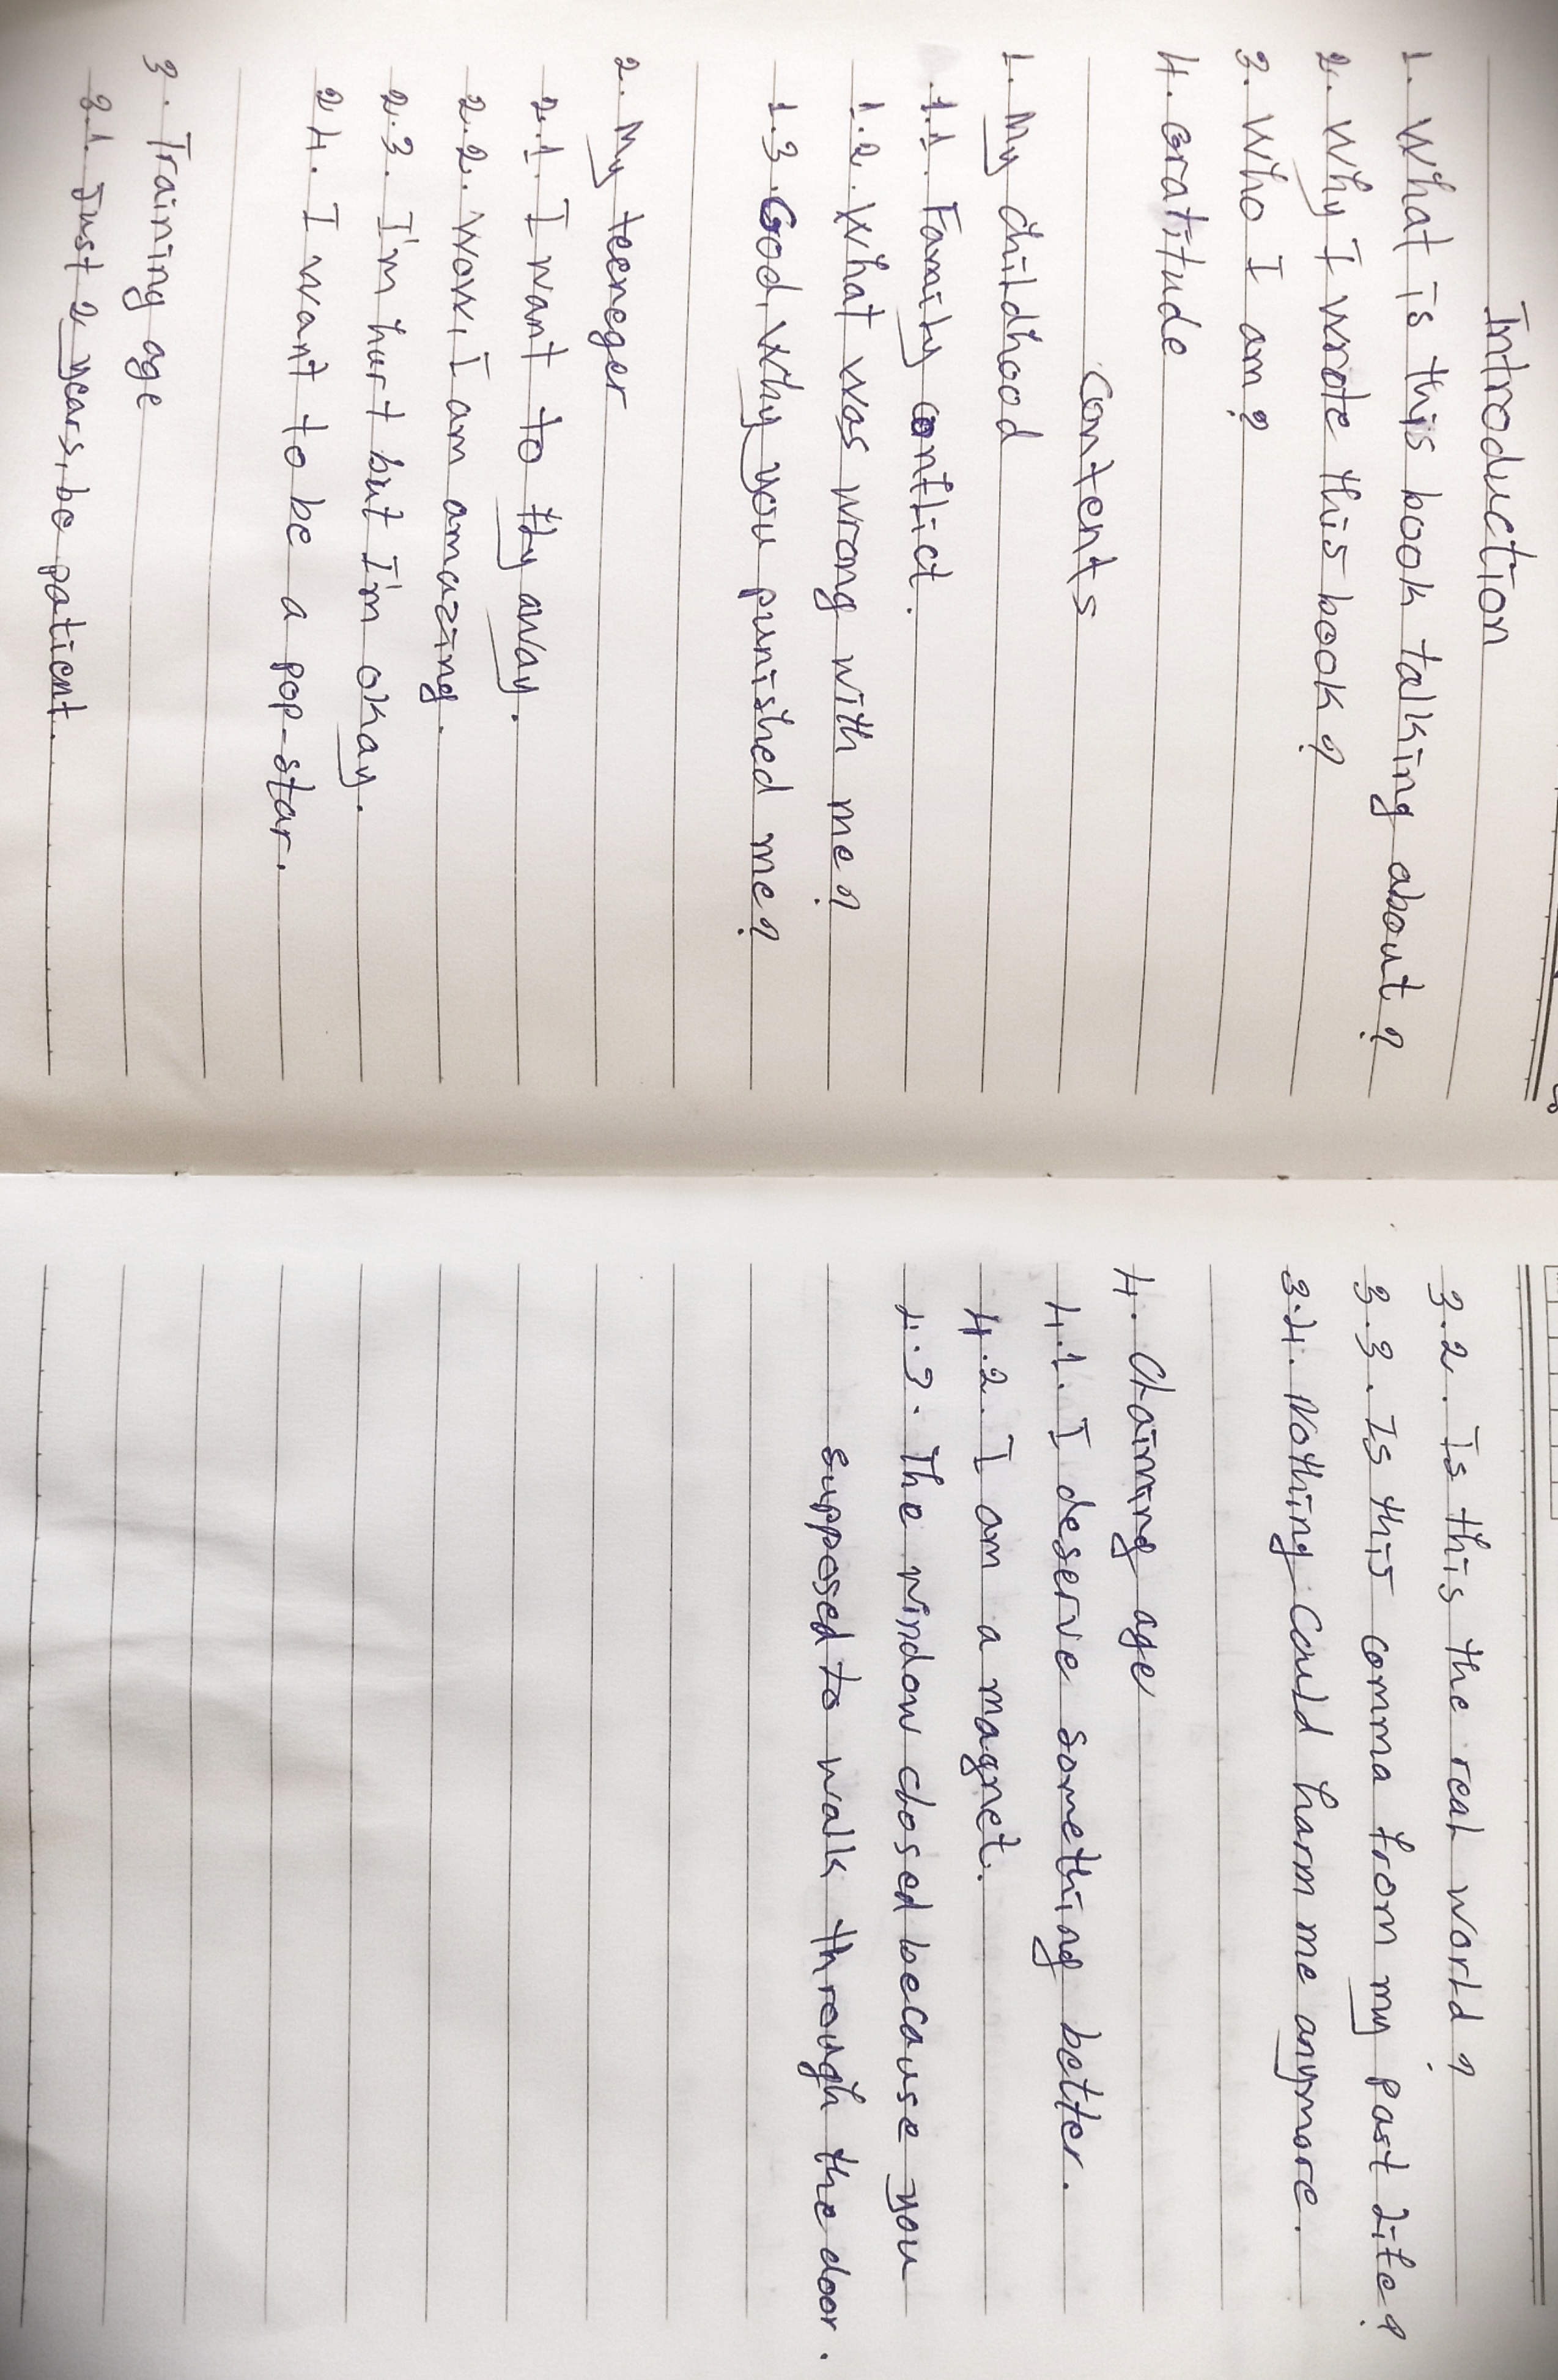 Introduction
1. What is this book talking about?
2. Why I wrote this book?
3. Who I am?
4. Gratitude
Contents
1. My childhood
1.1. Family conflict.
1.2. What was wrong with me?
1.3. God, Why you punished me?
2. My teeneger
2.1. I want to fly away.
2.2. Wow, I am amazing.
2.3. I'm hurt but I'm okay.
2.4. I want to be a pop-star.
3. Training age
3.1. Just 2 years, be patient.
3.2. Is this the real world?
3.3. Is this comma from my past life?
3.4. Nothing could harm me anymore.
4. Claiming age
4.1. I deserve something better.
4.2. I am a magnet.
4.3. The window closed because you
supposed to walk through the door.